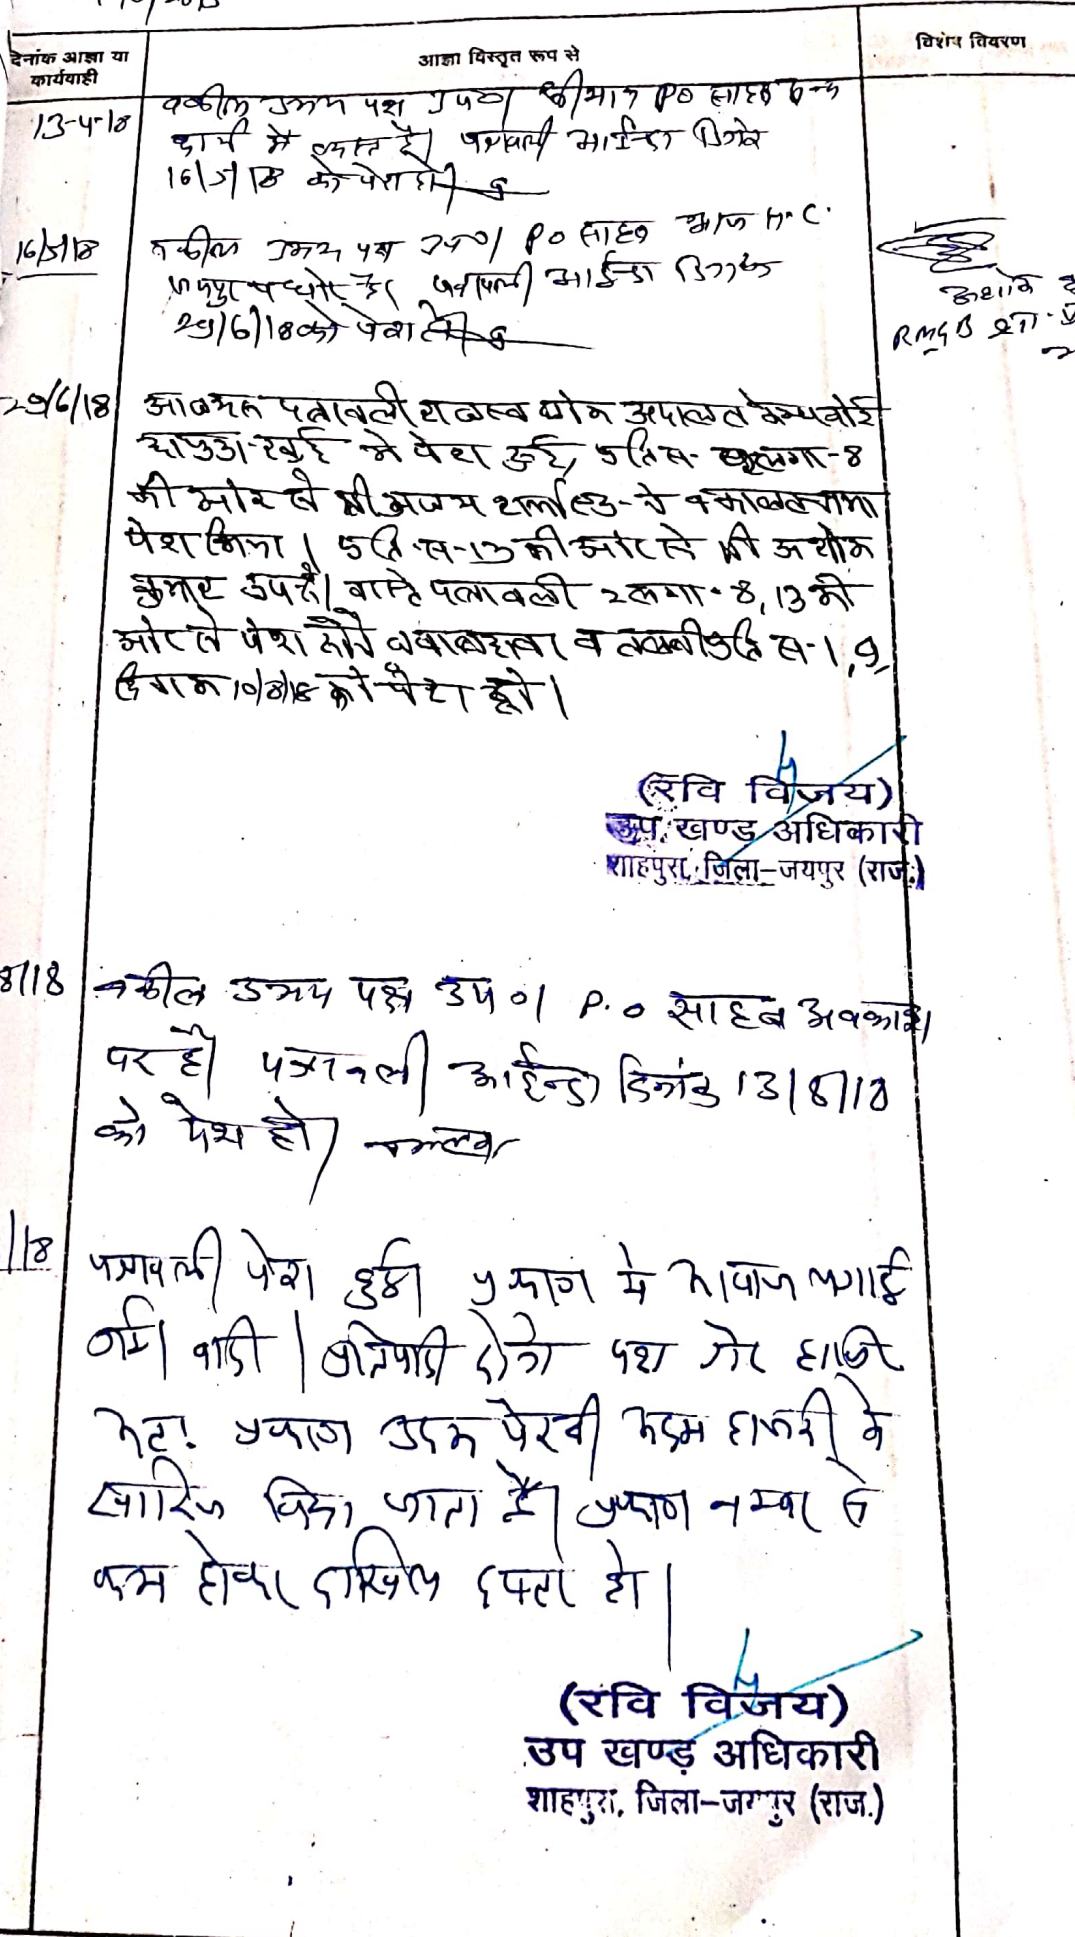 देनांक आज्ञा या
कार्यवाही
आज्ञा विस्तृत रूप से
विशेष विवरण
13-4-18
वकील उभय पक्ष उप0। श्रीमान PO साहब अन्य
कार्य में व्यस्त है। पत्रावली आईन्दा दिनांक
16/5/18 को पेश हो।
16/5/18
वकील उभय पक्ष उप0। PO साहब आज H.C.
जयपुर पत्रावली आईन्दा दिनांक
29/6/18 को पेश हो।
अशोक
RMGB
29/6/18
आज यह पत्रावली राजस्व लोक अदालत केम्प कोर्ट
में पेश हुई, प्रति स- लगा-8
की ओर से श्री अजय शर्मा एड- ने वकालतनामा
पेश किया। प्रति-स-13 की ओर से श्री अशोक
कुमार उप है। वास्ते पत्रावली 2 लगा-8, 13 की
ओर से पेश होने जवाबदावा व तलबी प्रति स-1, 9,
दिनांक 10/8/18 को पेश हो।
(रवि विजय)
उप खण्ड अधिकारी
शाहपुरा, जिला-जयपुर (राज.)
8/18
वकील उभय पक्ष उप0। P.O साहब अवकाश
पर है। पत्रावली आईन्दा दिनांक 13/8/18
को पेश हो।
/18
पत्रावली पेश हुई। प्रकरण में आवाज लगाई
गई। वादी / प्रतिवादी दोनो पक्ष गेर हाजिर
रहे। प्रकरण अदम पेरवी अदम हाजरी के
खारिज किया जाता है। प्रकरण नम्बर से
कम होकर दाखिल दफ्तर हो।
(रवि विजय)
उप खण्ड़ अधिकारी
शाहपुरा, जिला-जयपुर (राज.)